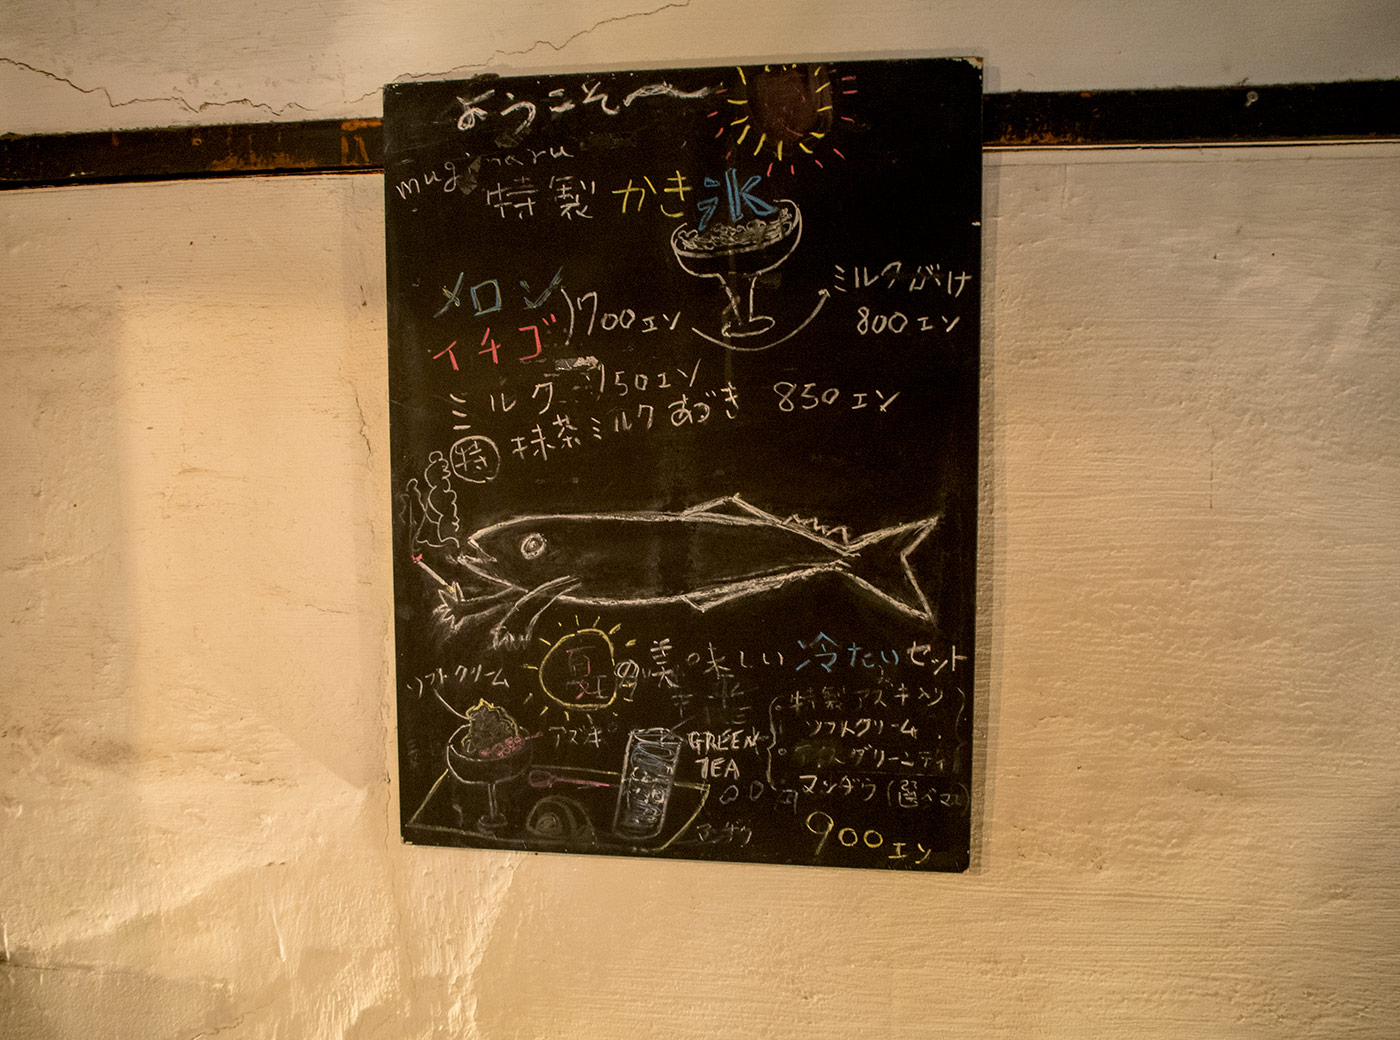 ようこそ〜
mugimaru
特製 かき氷
メロン
イチゴ
700エン
ミルクがけ
800エン
ミルク 750エン
特 抹茶ミルクあづき 850エン
夏の美味しい冷たいセット
ソフトクリーム
アズキ
GREEN
TEA
マンヂウ
特製アズキ入り
ソフトクリーム
アイスグリーンティ
マンヂウ
900エン